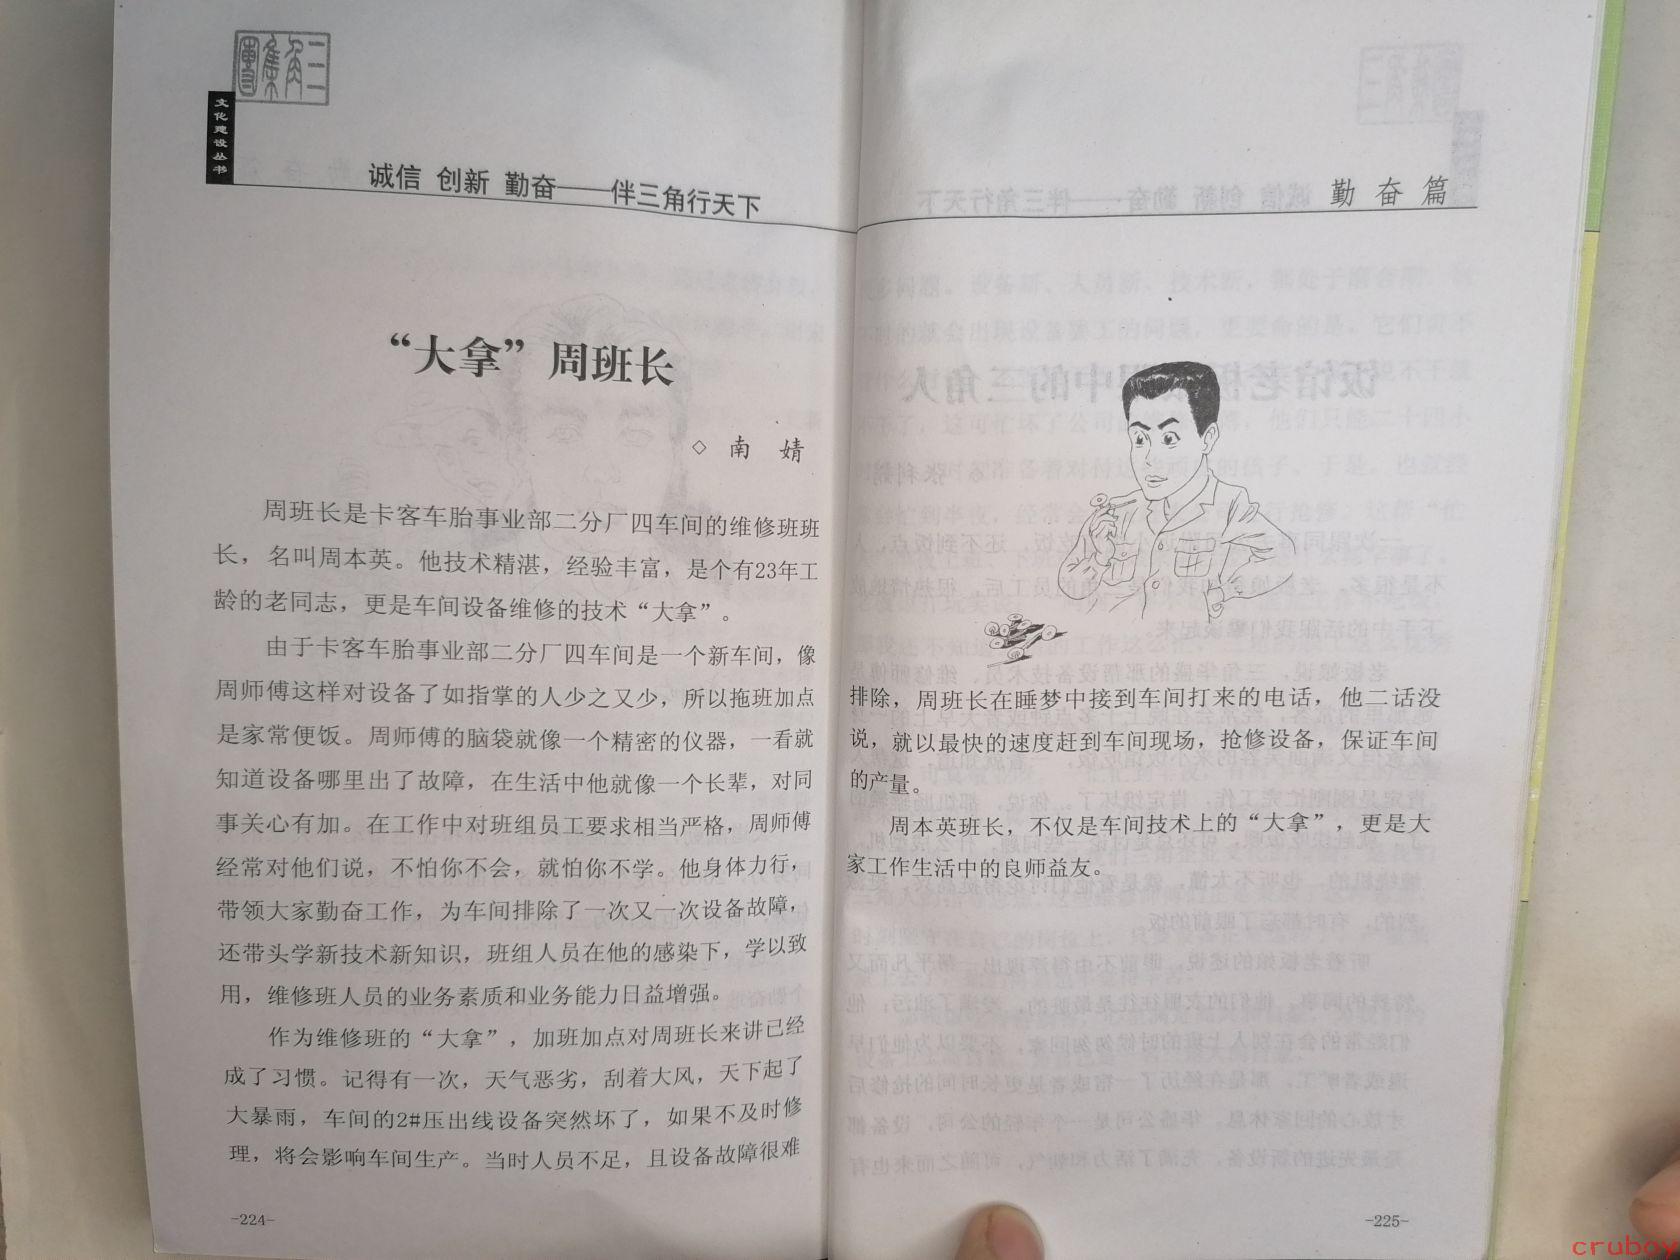 三角集團
文化建设丛书
诚信 创新 勤奋——伴三角行天下
“大拿”周班长
◇ 南 婧
周班长是卡客车胎事业部二分厂四车间的维修班班
长，名叫周本英。他技术精湛，经验丰富，是个有23年工
龄的老同志，更是车间设备维修的技术“大拿”。
由于卡客车胎事业部二分厂四车间是一个新车间，像
周师傅这样对设备了如指掌的人少之又少，所以拖班加点
是家常便饭。周师傅的脑袋就像一个精密的仪器，一看就
知道设备哪里出了故障，在生活中他就像一个长辈，对同
事关心有加。在工作中对班组员工要求相当严格，周师傅
经常对他们说，不怕你不会，就怕你不学。他身体力行，
带领大家勤奋工作，为车间排除了一次又一次设备故障，
还带头学新技术新知识，班组人员在他的感染下，学以致
用，维修班人员的业务素质和业务能力日益增强。
作为维修班的“大拿”，加班加点对周班长来讲已经
成了习惯。记得有一次，天气恶劣，刮着大风，天下起了
大暴雨，车间的2#压出线设备突然坏了，如果不及时修
理，将会影响车间生产。当时人员不足，且设备故障很难
-224-
勤奋篇
排除，周班长在睡梦中接到车间打来的电话，他二话没
说，就以最快的速度赶到车间现场，抢修设备，保证车间
的产量。
周本英班长，不仅是车间技术上的“大拿”，更是大
家工作生活中的良师益友。
-225-
cruboy